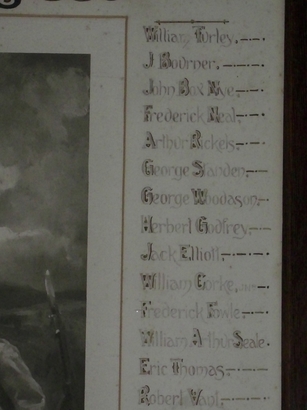 William Turley.
J Bourner.
John Box Nye.
Frederick Neal.
Arthur Rickels.
George Standen.
George Woodason.
Herbert Godfrey.
Jack Elliott.
William Gorke.
Frederick Fowle
William Arthur Seale.
Eric Thomas.
Robert